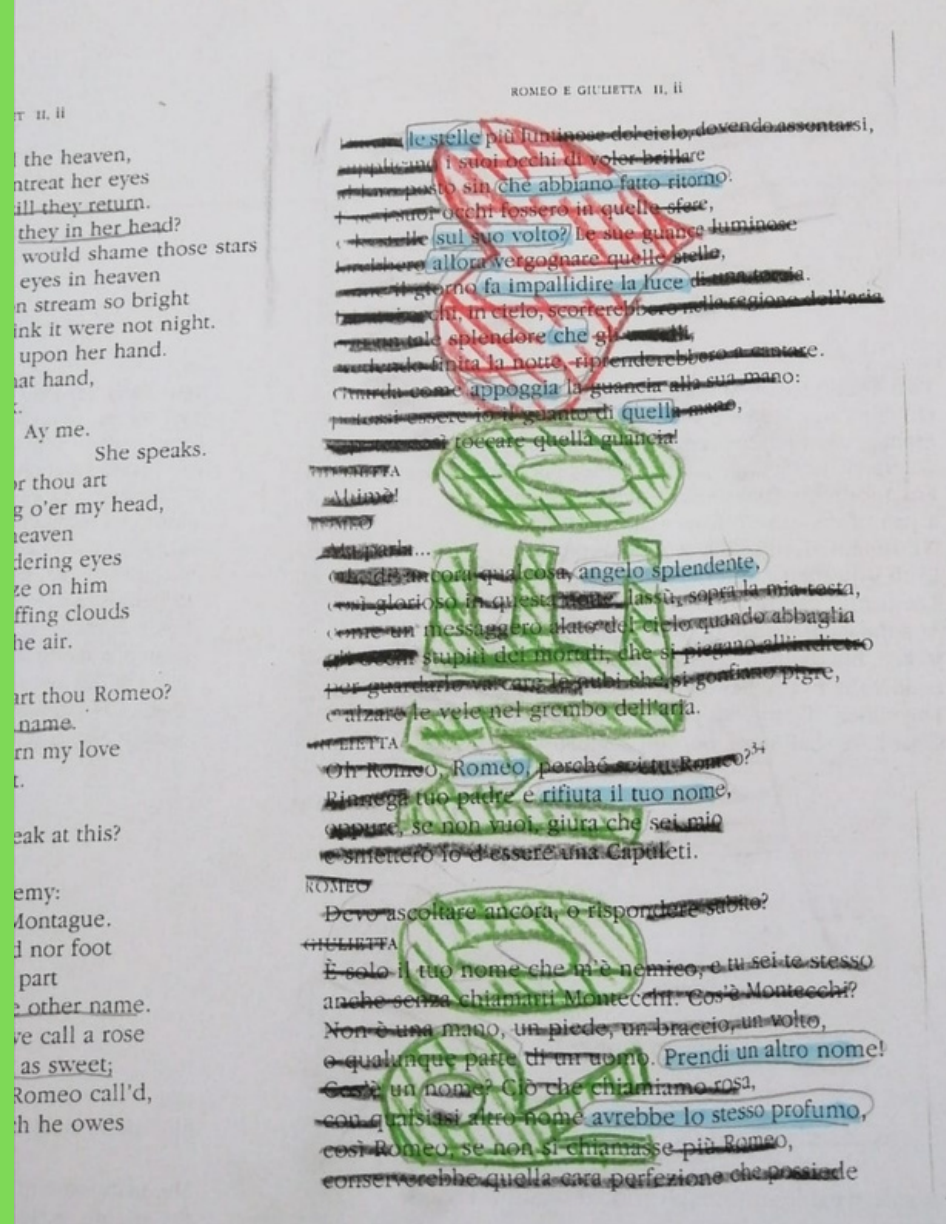 T II, ii
the heaven,
ntreat her eyes
ill they return.
they in her head?
would shame those stars
eyes in heaven
n stream so bright
ink it were not night.
upon her hand.
hat hand,
Ay me.
She speaks.
or thou art
g o'er my head,
heaven
dering eyes
ze on him
ffing clouds
he air.
art thou Romeo?
name.
rn my love
t.
eak at this?
emy:
Montague.
d nor foot
part
e other name.
ve call a rose
as sweet;
Romeo call'd,
h he owes
ROMEO E GIULIETTA II, ii
le stelle più luminose del cielo, dovendo assentarsi,
supplicano i suoi occhi di voler brillare
posto sin che abbiano fatto ritorno.
i suoi occhi fossero in quelle sfere,
le stelle sul suo volto? Le sue guance luminose
farebbero allora vergognare quelle stelle,
come il giorno fa impallidire la luce di una torcia.
occhi, in cielo, scorrerebbero nella regione dell'aria
con tale splendore che gli uccelli,
vedendo finita la notte, riprenderebbero a cantare.
Guarda come appoggia la guancia alla sua mano:
potessi essere io il guanto di quella mano,
toccare quella guancia!
GIULIETTA
Ahimè!
ROMEO
Ma parla...
ancora qualcosa, angelo splendente,
così glorioso in questa notte, lassù, sopra la mia testa,
come un messaggero alato del cielo quando abbaglia
gli occhi stupiti dei mortali, che si piegano all'indietro
per guardarlo varcare le nubi che si gonfiano pigre,
e alzare le vele nel grembo dell'aria.
GIULIETTA
Oh Romeo, Romeo, perché sei tu Romeo?³⁴
Rinnega tuo padre e rifiuta il tuo nome,
oppure, se non vuoi, giura che sei mio
e smetterò io d'essere una Capuleti.
ROMEO
Devo ascoltare ancora, o rispondere subito?
GIULIETTA
È solo il tuo nome che m'è nemico, e tu sei te stesso
anche senza chiamarti Montecchi. Cos'è Montecchi?
Non è una mano, un piede, un braccio, un volto,
o qualunque parte di un uomo. Prendi un altro nome!
Cos'è un nome? Ciò che chiamiamo rosa,
con qualsiasi altro nome avrebbe lo stesso profumo,
così Romeo, se non si chiamasse più Romeo,
conserverebbe quella cara perfezione che possiede